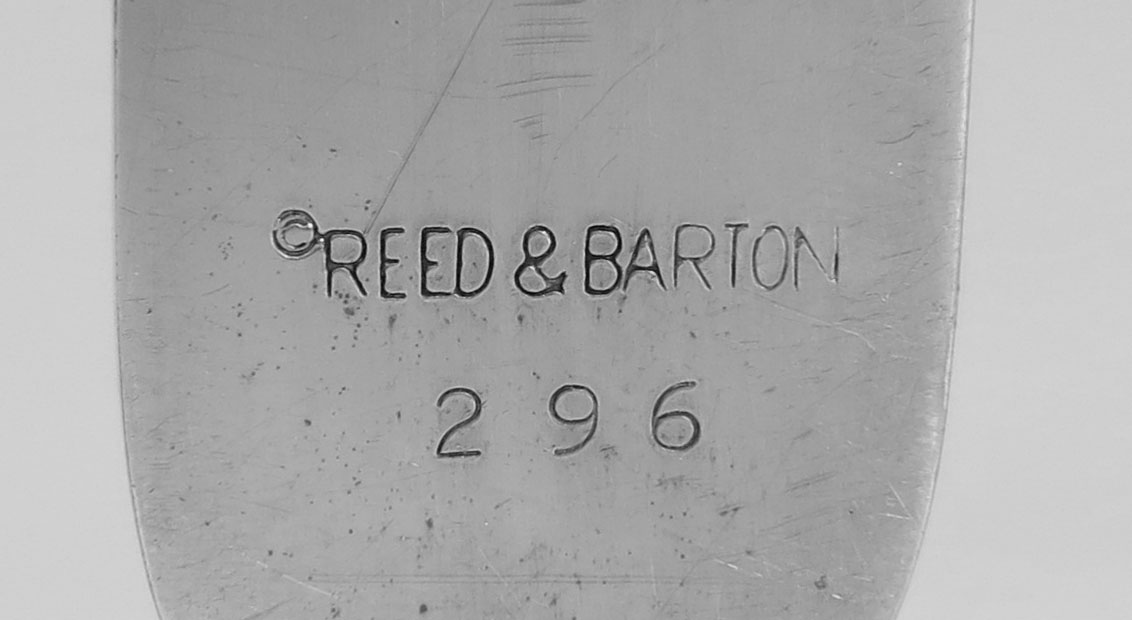 ©REED & BARTON
296